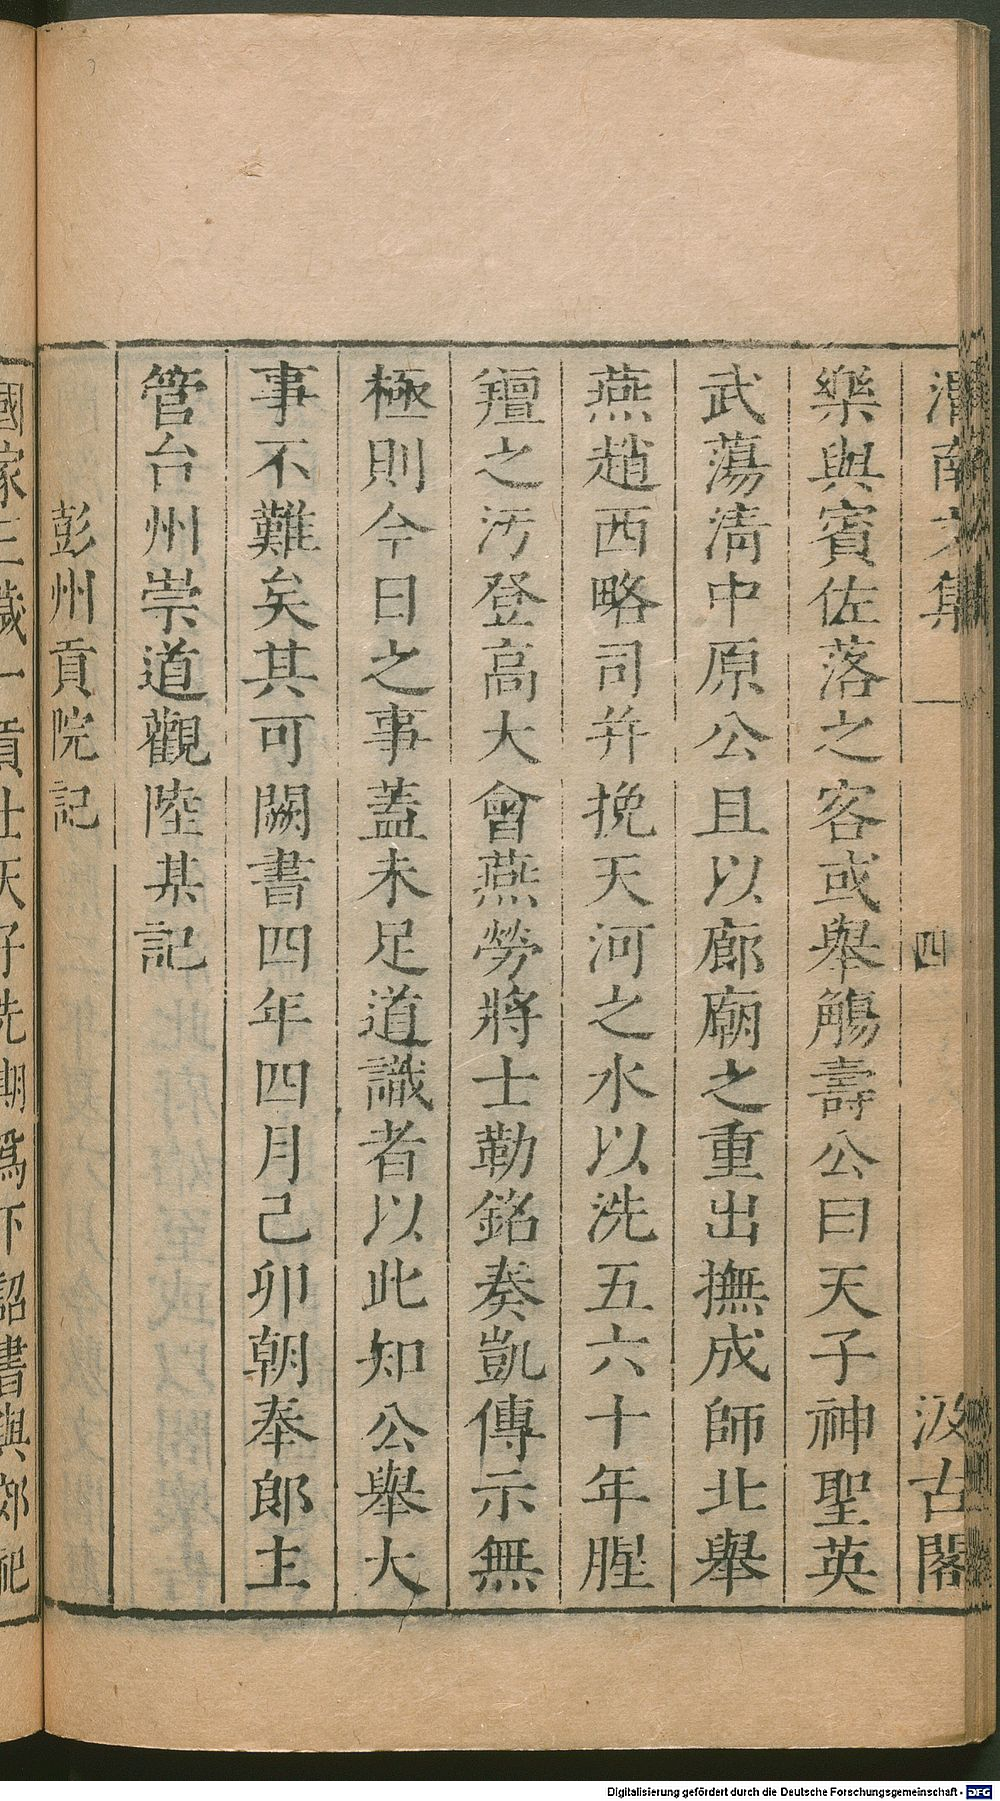 渭南文集
四
汲古閣
樂與賓佐落之客或舉觴壽公曰天子神聖英
武蕩清中原公且以廊廟之重出撫成師北舉
燕趙西略司并挽天河之水以洗五六十年腥
羶之汚登高大會燕勞將士勒銘奏凱傳示無
極則今日之事蓋未足道識者以此知公舉大
事不難矣其可闕書四年四月己卯朝奉郎主
管台州崇道觀陸某記
彭州貢院記
國家三歲一貢士天子先期爲下詔書與郊祀
Digitalisierung gefördert durch die Deutsche Forschungsgemeinschaft - DFG